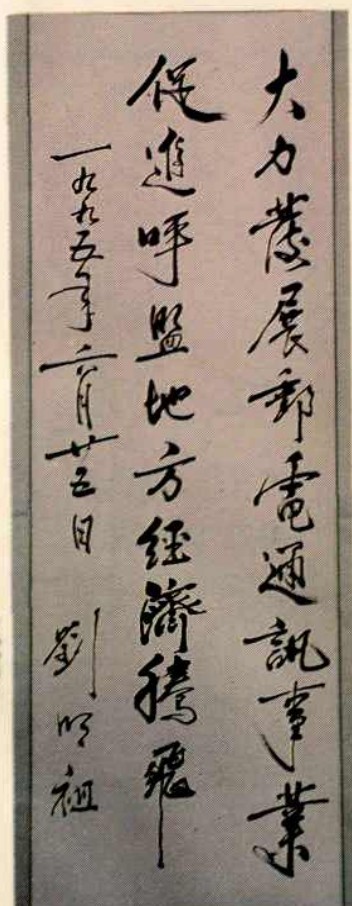 大力發展郵電通訊事業
促進呼盟地方經濟騰飛
一九九五年六月廿五日 劉明祖